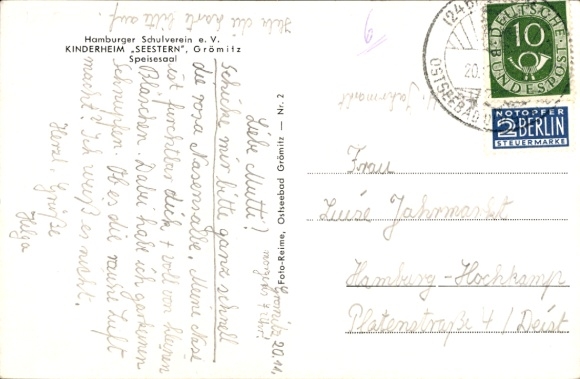 Hebe die Karte bitte auf.
Hamburger Schulverein e. V.
KINDERHEIM „SEESTERN", Grömitz
Speisesaal
Grömitz 20.11.
Liebe Mutti!
Schicke mir bitte ganz schnell
die rosa Nasensalbe. Meine Nase
ist furchtbar dick + voll von kleinen
Bläschen. Dabei hab ich gar keinen
Schnupfen. Ob es die rauhe Luft
macht? Ich weiß es nicht.
Herzl. Grüße
Helga
Foto-Reime, Ostseebad Grömitz — Nr. 2
6
Jahrmarkt
DEUTSCHE
BUNDESPOST
10
20.
OSTSEEBAD
NOTOPFER
2 BERLIN
STEUERMARKE
Frau
Luise Jahrmarkt
Hamburg-Hochkamp
Platenstraße 4 / Deist